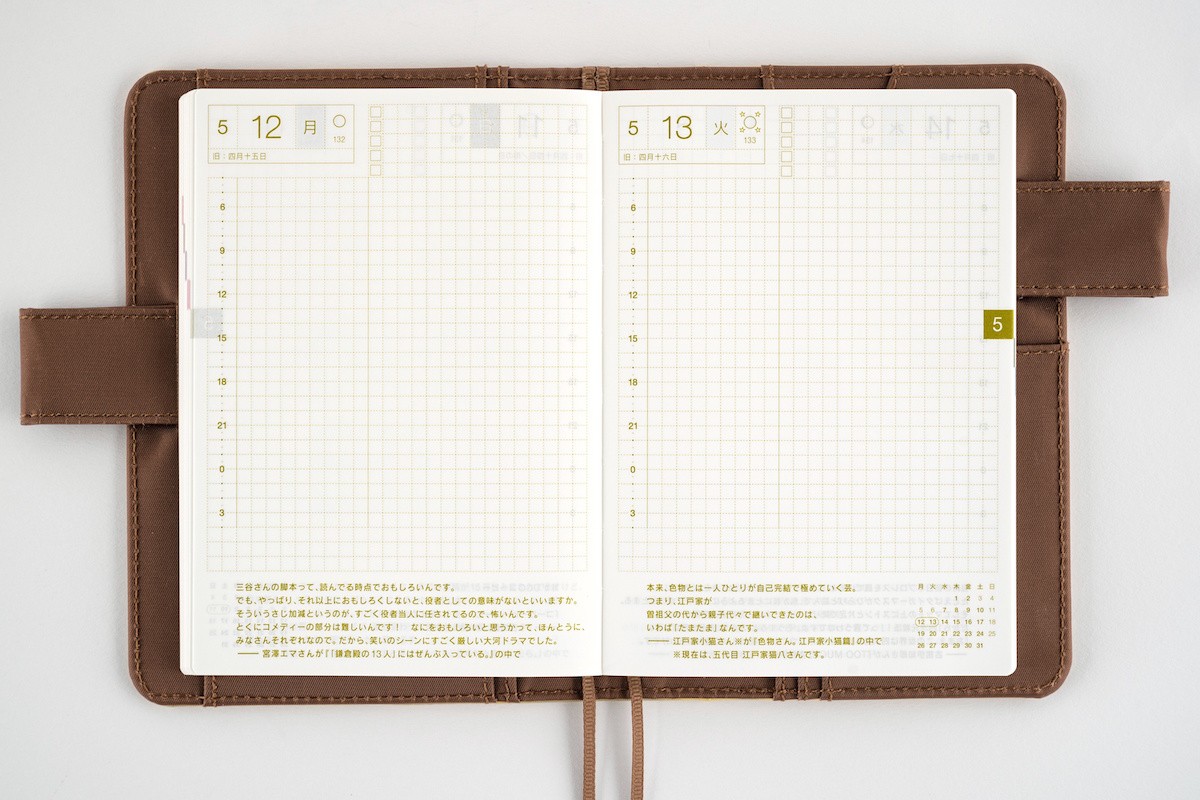 5 12 月
132
旧：四月十五日
6
9
12
15
18
21
0
3
三谷さんの脚本って、読んでる時点でおもしろいんです。
でも、やっぱり、それ以上におもしろくしないと、役者としての意味がないといいますか。
そういうさじ加減というのが、すごく役者当人に任されてるので、怖いんです。
とくにコメディーの部分は難しいんです！　なにをおもしろいと思うかって、ほんとうに、
みなさんそれぞれなので。だから、笑いのシーンにすごく厳しい大河ドラマでした。
―― 宮澤エマさんが『「鎌倉殿の13人」にはぜんぶ入っている。』の中で
5 13 火
133
旧：四月十六日
6
9
12
15
18
21
0
3
5
本来、色物とは一人ひとりが自己完結で極めていく芸。
つまり、江戸家が
曽祖父の代から親子代々で継いできたのは、
いわば「たまたま」なんです。
―― 江戸家小猫さん※が『色物さん。江戸家小猫篇』の中で
※現在は、五代目 江戸家猫八さんです。
月 火 水 木 金 土 日
1 2 3 4
5 6 7 8 9 10 11
12 13 14 15 16 17 18
19 20 21 22 23 24 25
26 27 28 29 30 31